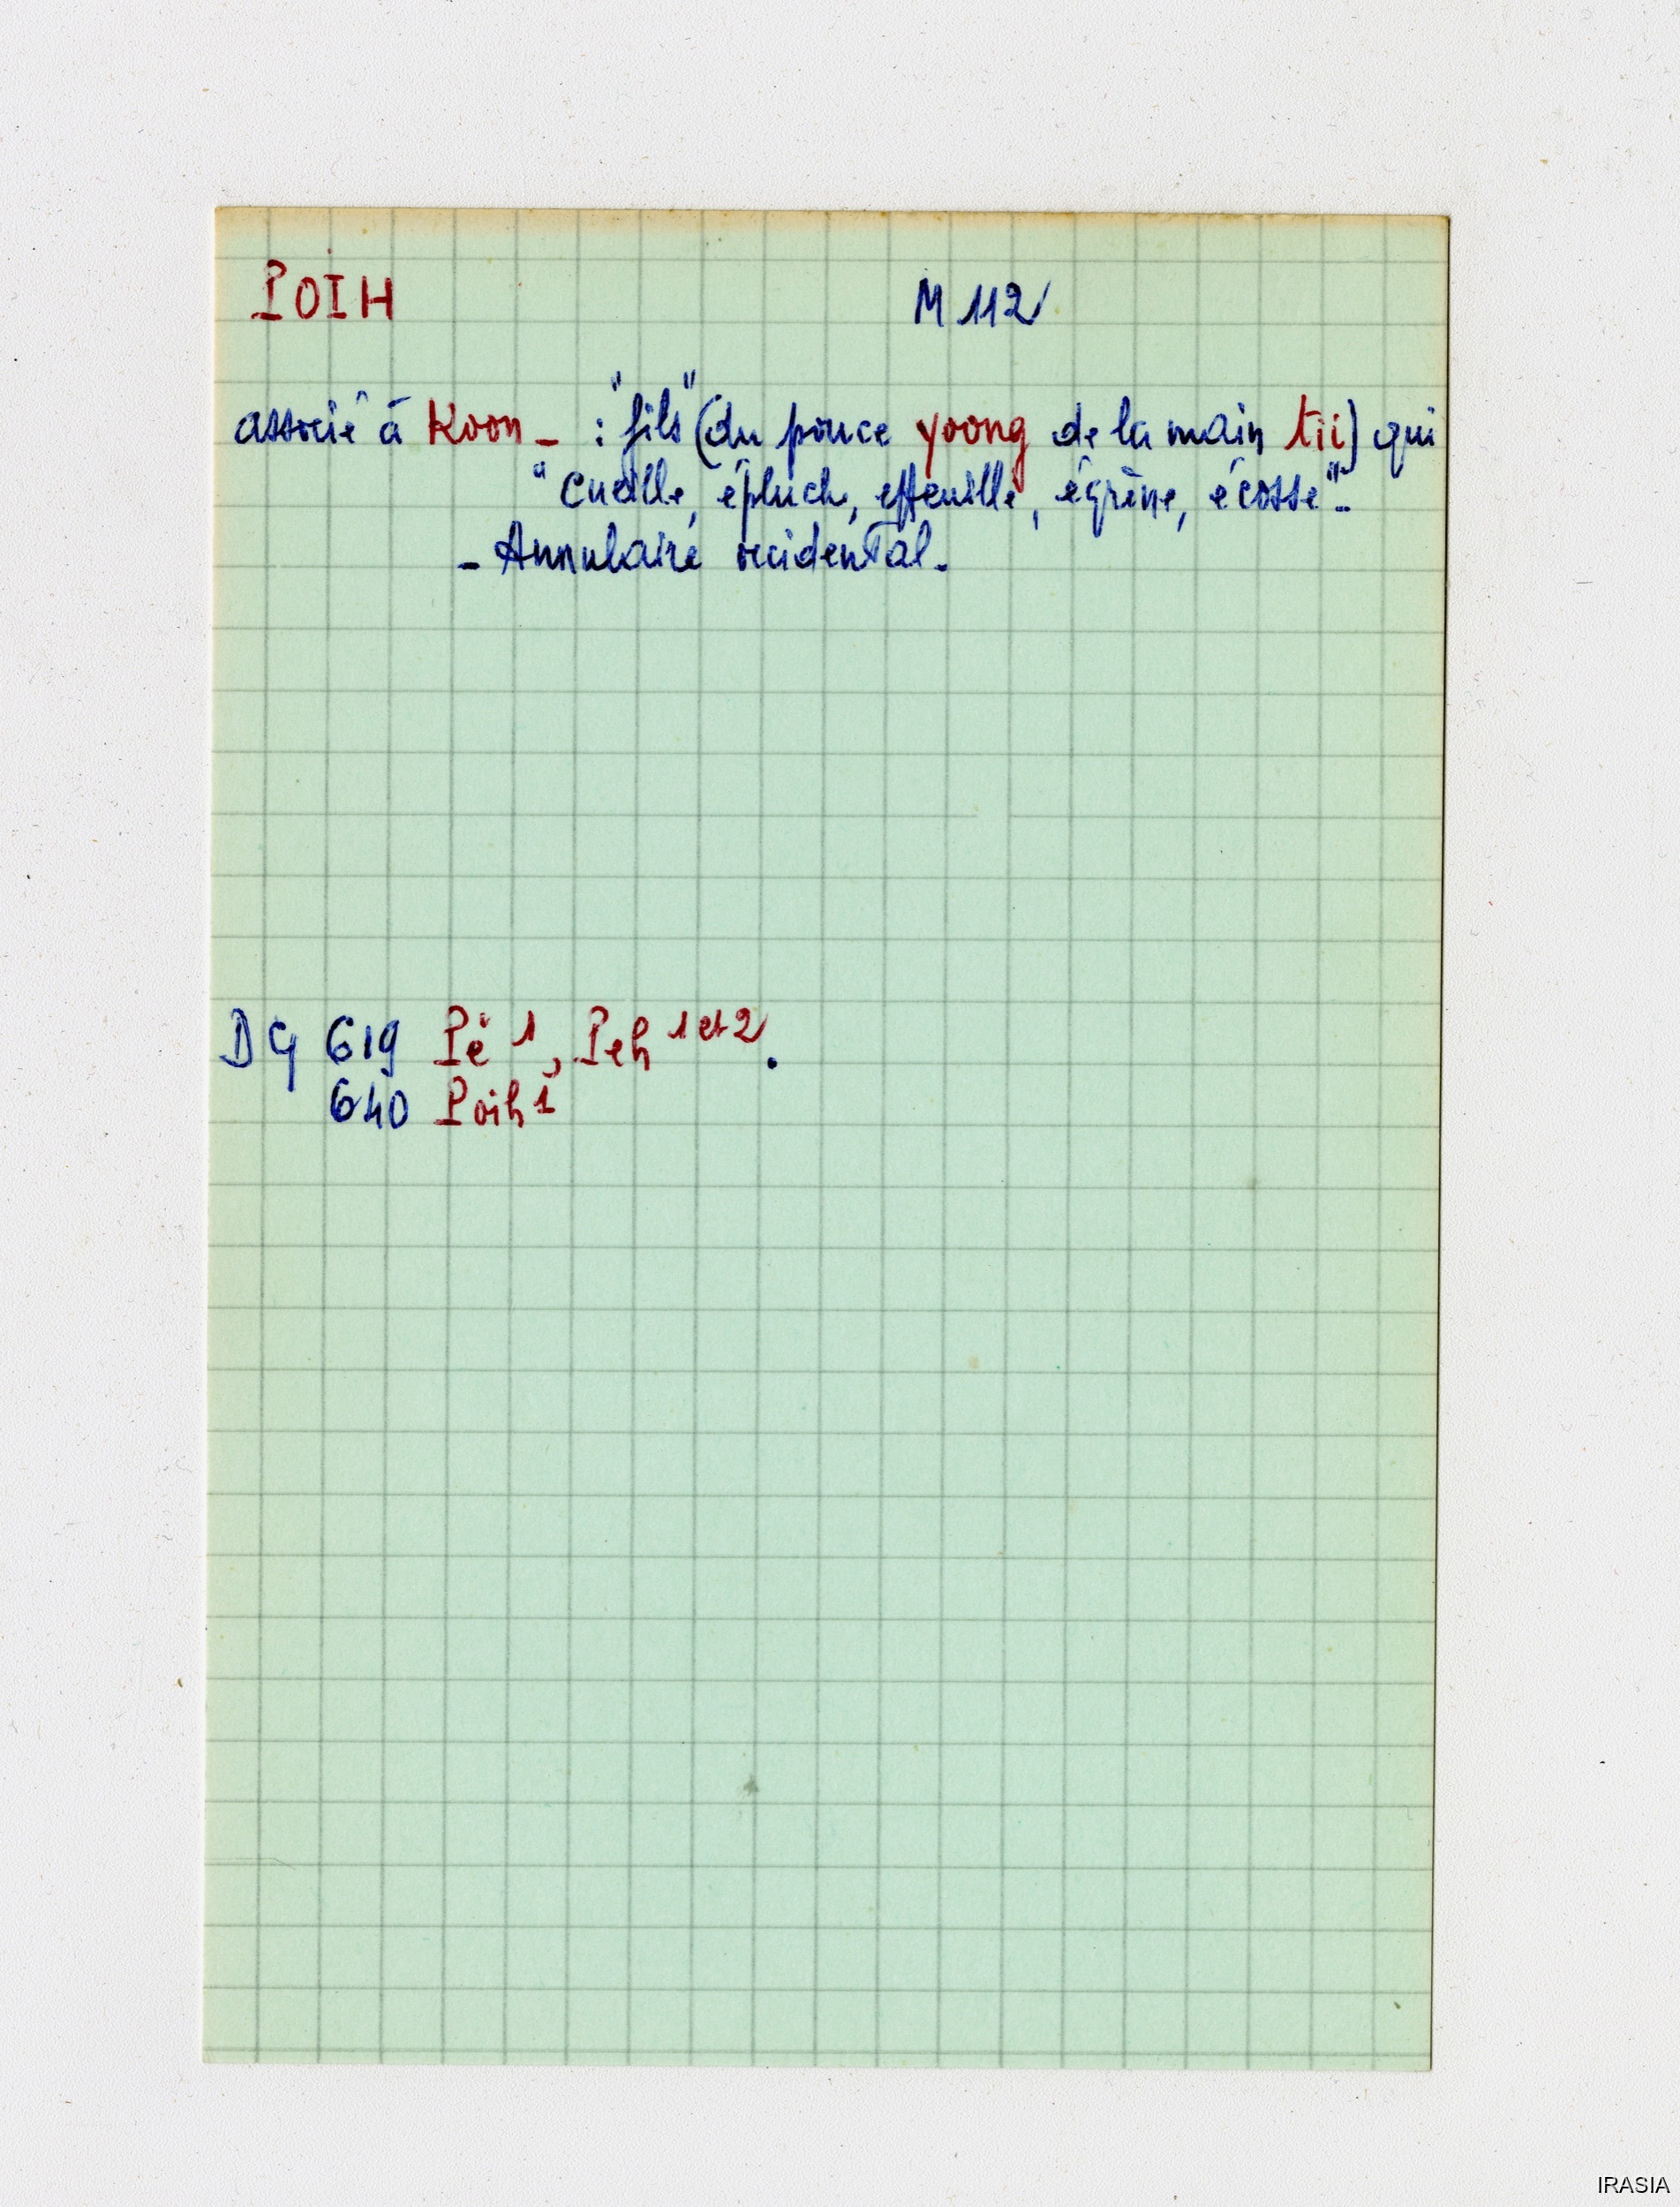 POIH M 112
associé à Koon _ : "fils" (du pouce yoong de la main tii) qui
"cueille, épluch, effeuille, égrène, écosse".
_ Annulaire occidental.
DG 619 Pè 1, Peh 1 et 2.
640 Poih 1
IRASIA